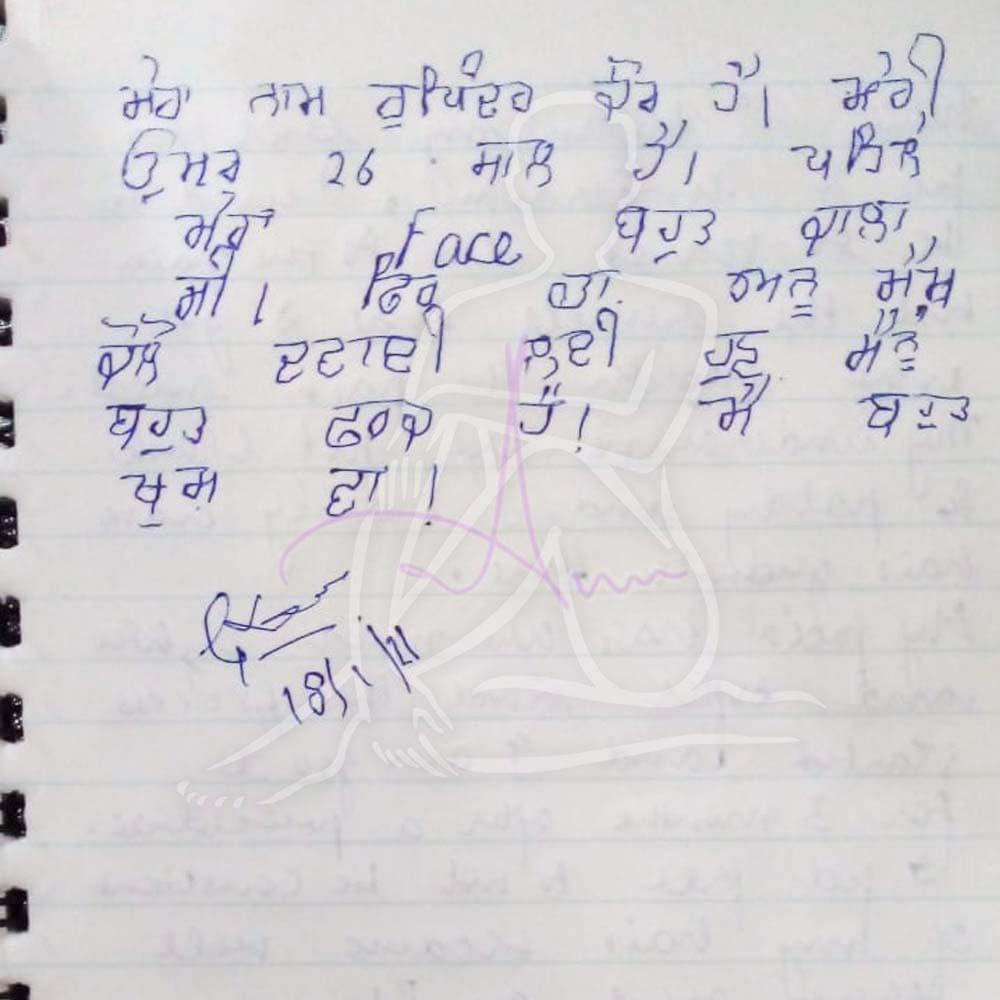 ਮੇਰਾ ਨਾਮ ਰੁਪਿੰਦਰ ਕੌਰ ਹੈ। ਮੇਰੀ
ਉਮਰ 26 ਸਾਲ ਹੈ। ਪਹਿਲੇ
ਮੇਰਾ Face ਬਹੁਤ ਕਾਲਾ
ਸੀ। ਫਿਰ
ਕੋਲੋ ਦਵਾਈ ਲਈ ਹੁਣ ਮੈਨੂੰ
ਬਹੁਤ ਫਰਕ ਹੈ। ਮੈਂ ਬਹੁਤ
ਖੁਸ਼ ਹਾ।
18/1/21